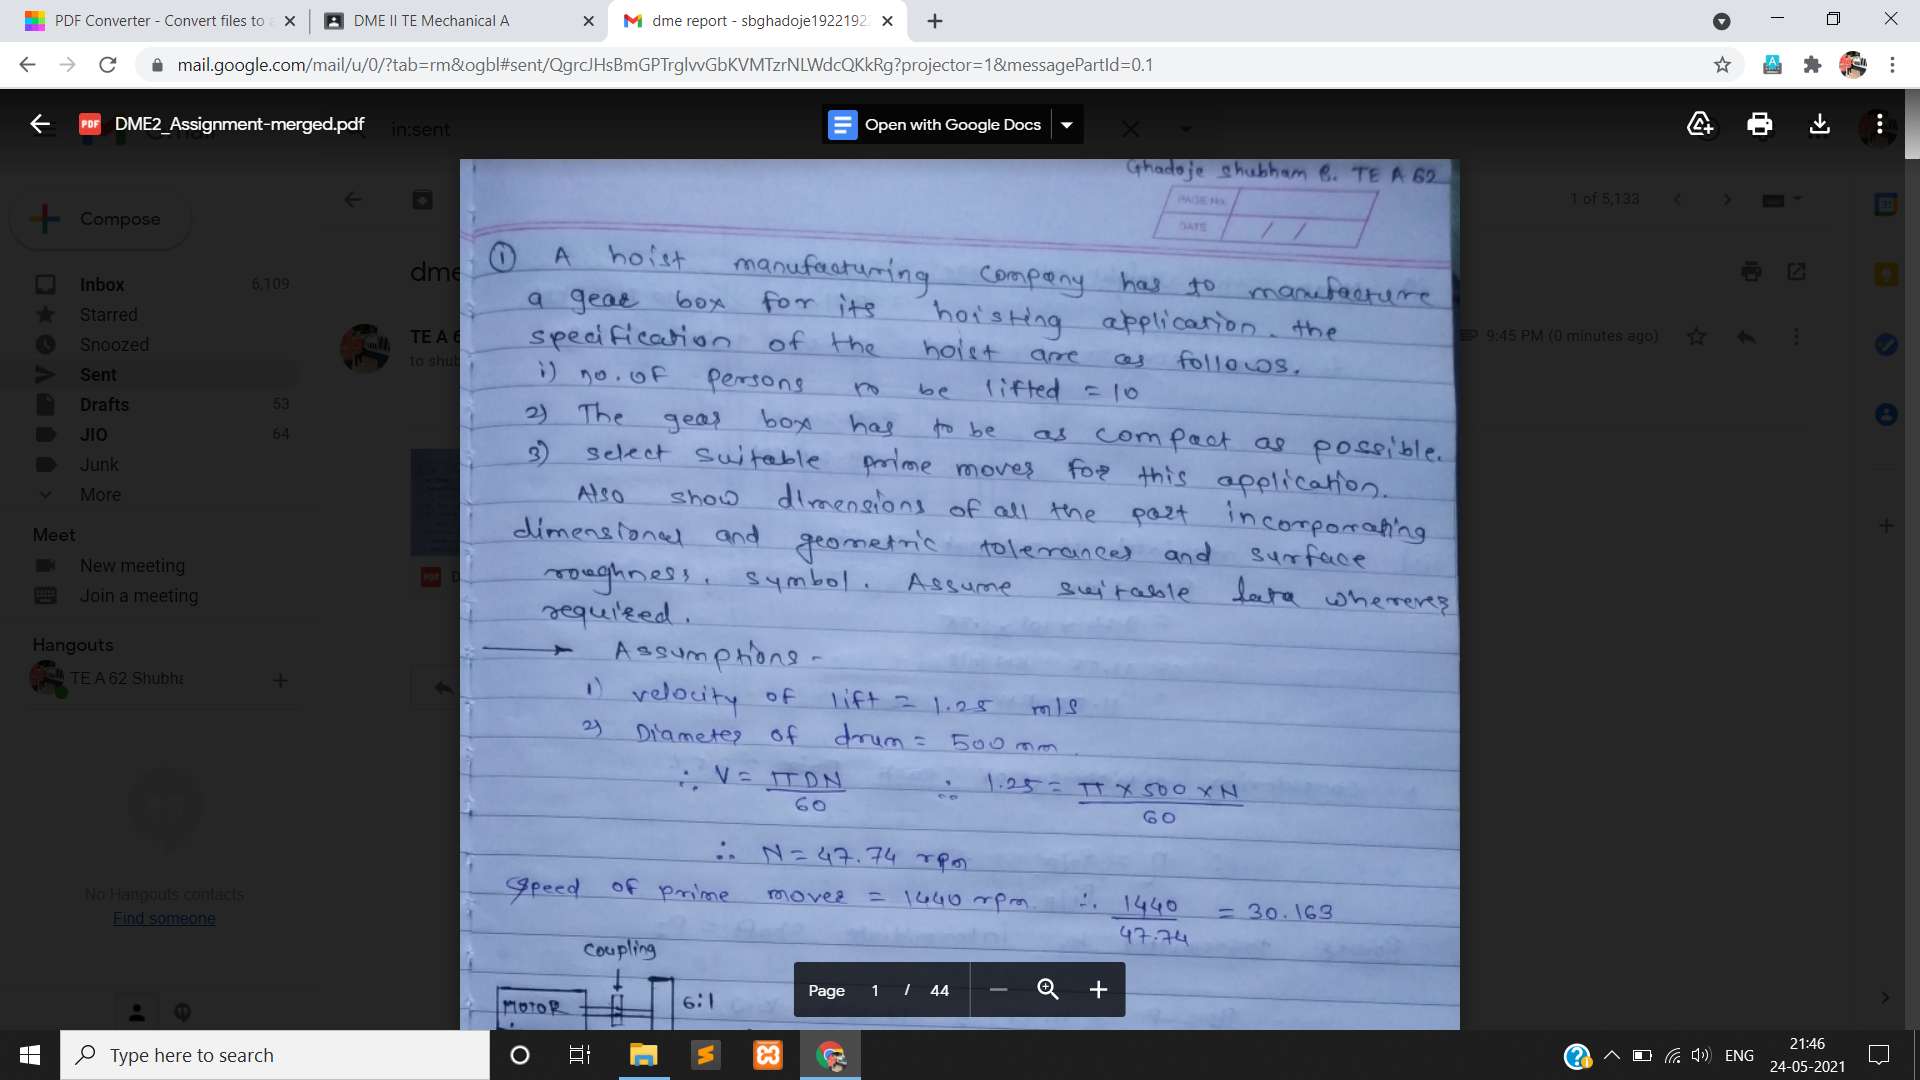 PDF Converter - Convert files to a
DME II TE Mechanical A
dme report - sbghadoje1922192
mail.google.com/mail/u/0/?tab=rm&ogbl#sent/QgrcJHsBmGPTrglvvGbKVMTzrNLWdcQKkRg?projector=1&messagePartId=0.1
PDF DME2_Assignment-merged.pdf
in:sent
Open with Google Docs
Compose
1 of 5,133
Inbox 6,109
Starred
Snoozed
Sent
Drafts 53
JIO 64
Junk
More
Meet
New meeting
Join a meeting
Hangouts
TE A 62 Shubha
No Hangouts contacts
Find someone
dme
TE A 6
to shub
9:45 PM (0 minutes ago)
PDF D
Ghadoje Shubham B. TE A 62
PAGE No.
DATE / /
① A hoist manufacturing company has to manufacture
a gear box for its hoisting application. the
specification of the hoist are as follows.
i) no. of persons to be lifted = 10
2) The gear box has to be as compact as possible.
3) select suitable prime mover for this application.
Also show dimensions of all the part incorporating
dimensional and geometric tolerances and surface
roughness. symbol. Assume suitable data wherever
required.
→ Assumptions -
1) velocity of lift = 1.25 m/s
2) Diameter of drum = 500 mm
∴ V = πDN/60 ∴ 1.25 = π × 500 × N/60
∴ N = 47.74 rpm
Speed of prime mover = 1440 rpm. ∴ 1440/47.74 = 30.163
coupling
MOTOR 6:1
Page 1 / 44
Type here to search
ENG
21:46
24-05-2021